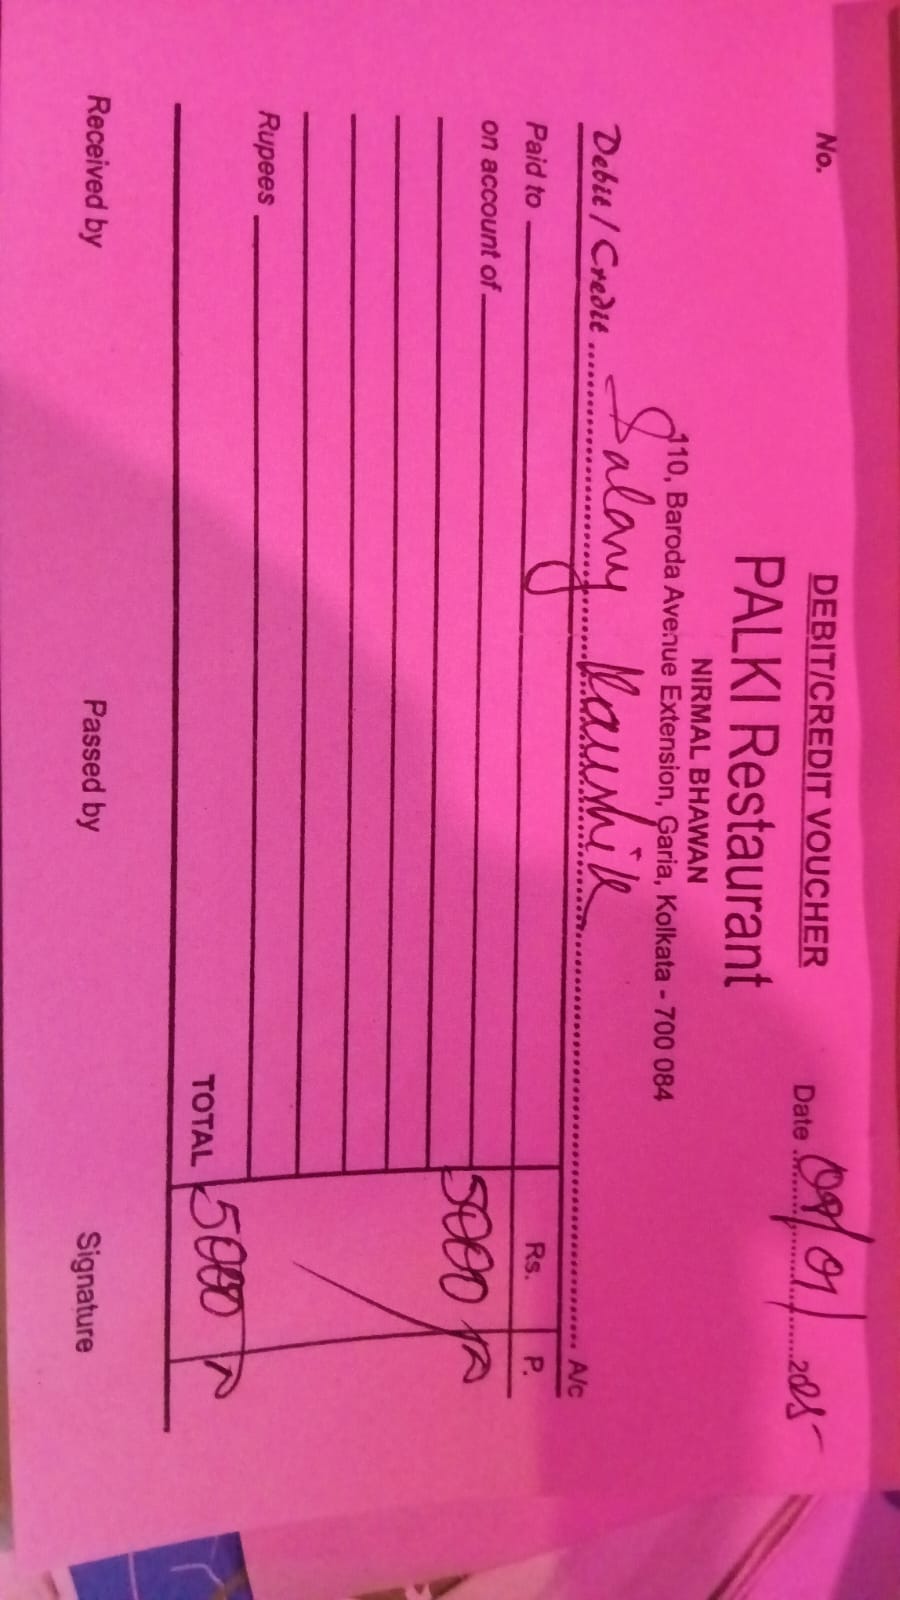 No.
DEBIT/CREDIT VOUCHER
PALKI Restaurant
NIRMAL BHAWAN
110, Baroda Avenue Extension, Garia, Kolkata - 700 084
Date 09/01/2025
Debit / Credit Salary Kaushik A/c
Paid to Rs. P.
on account of 5000
Rupees
TOTAL 5000
Received by Passed by Signature